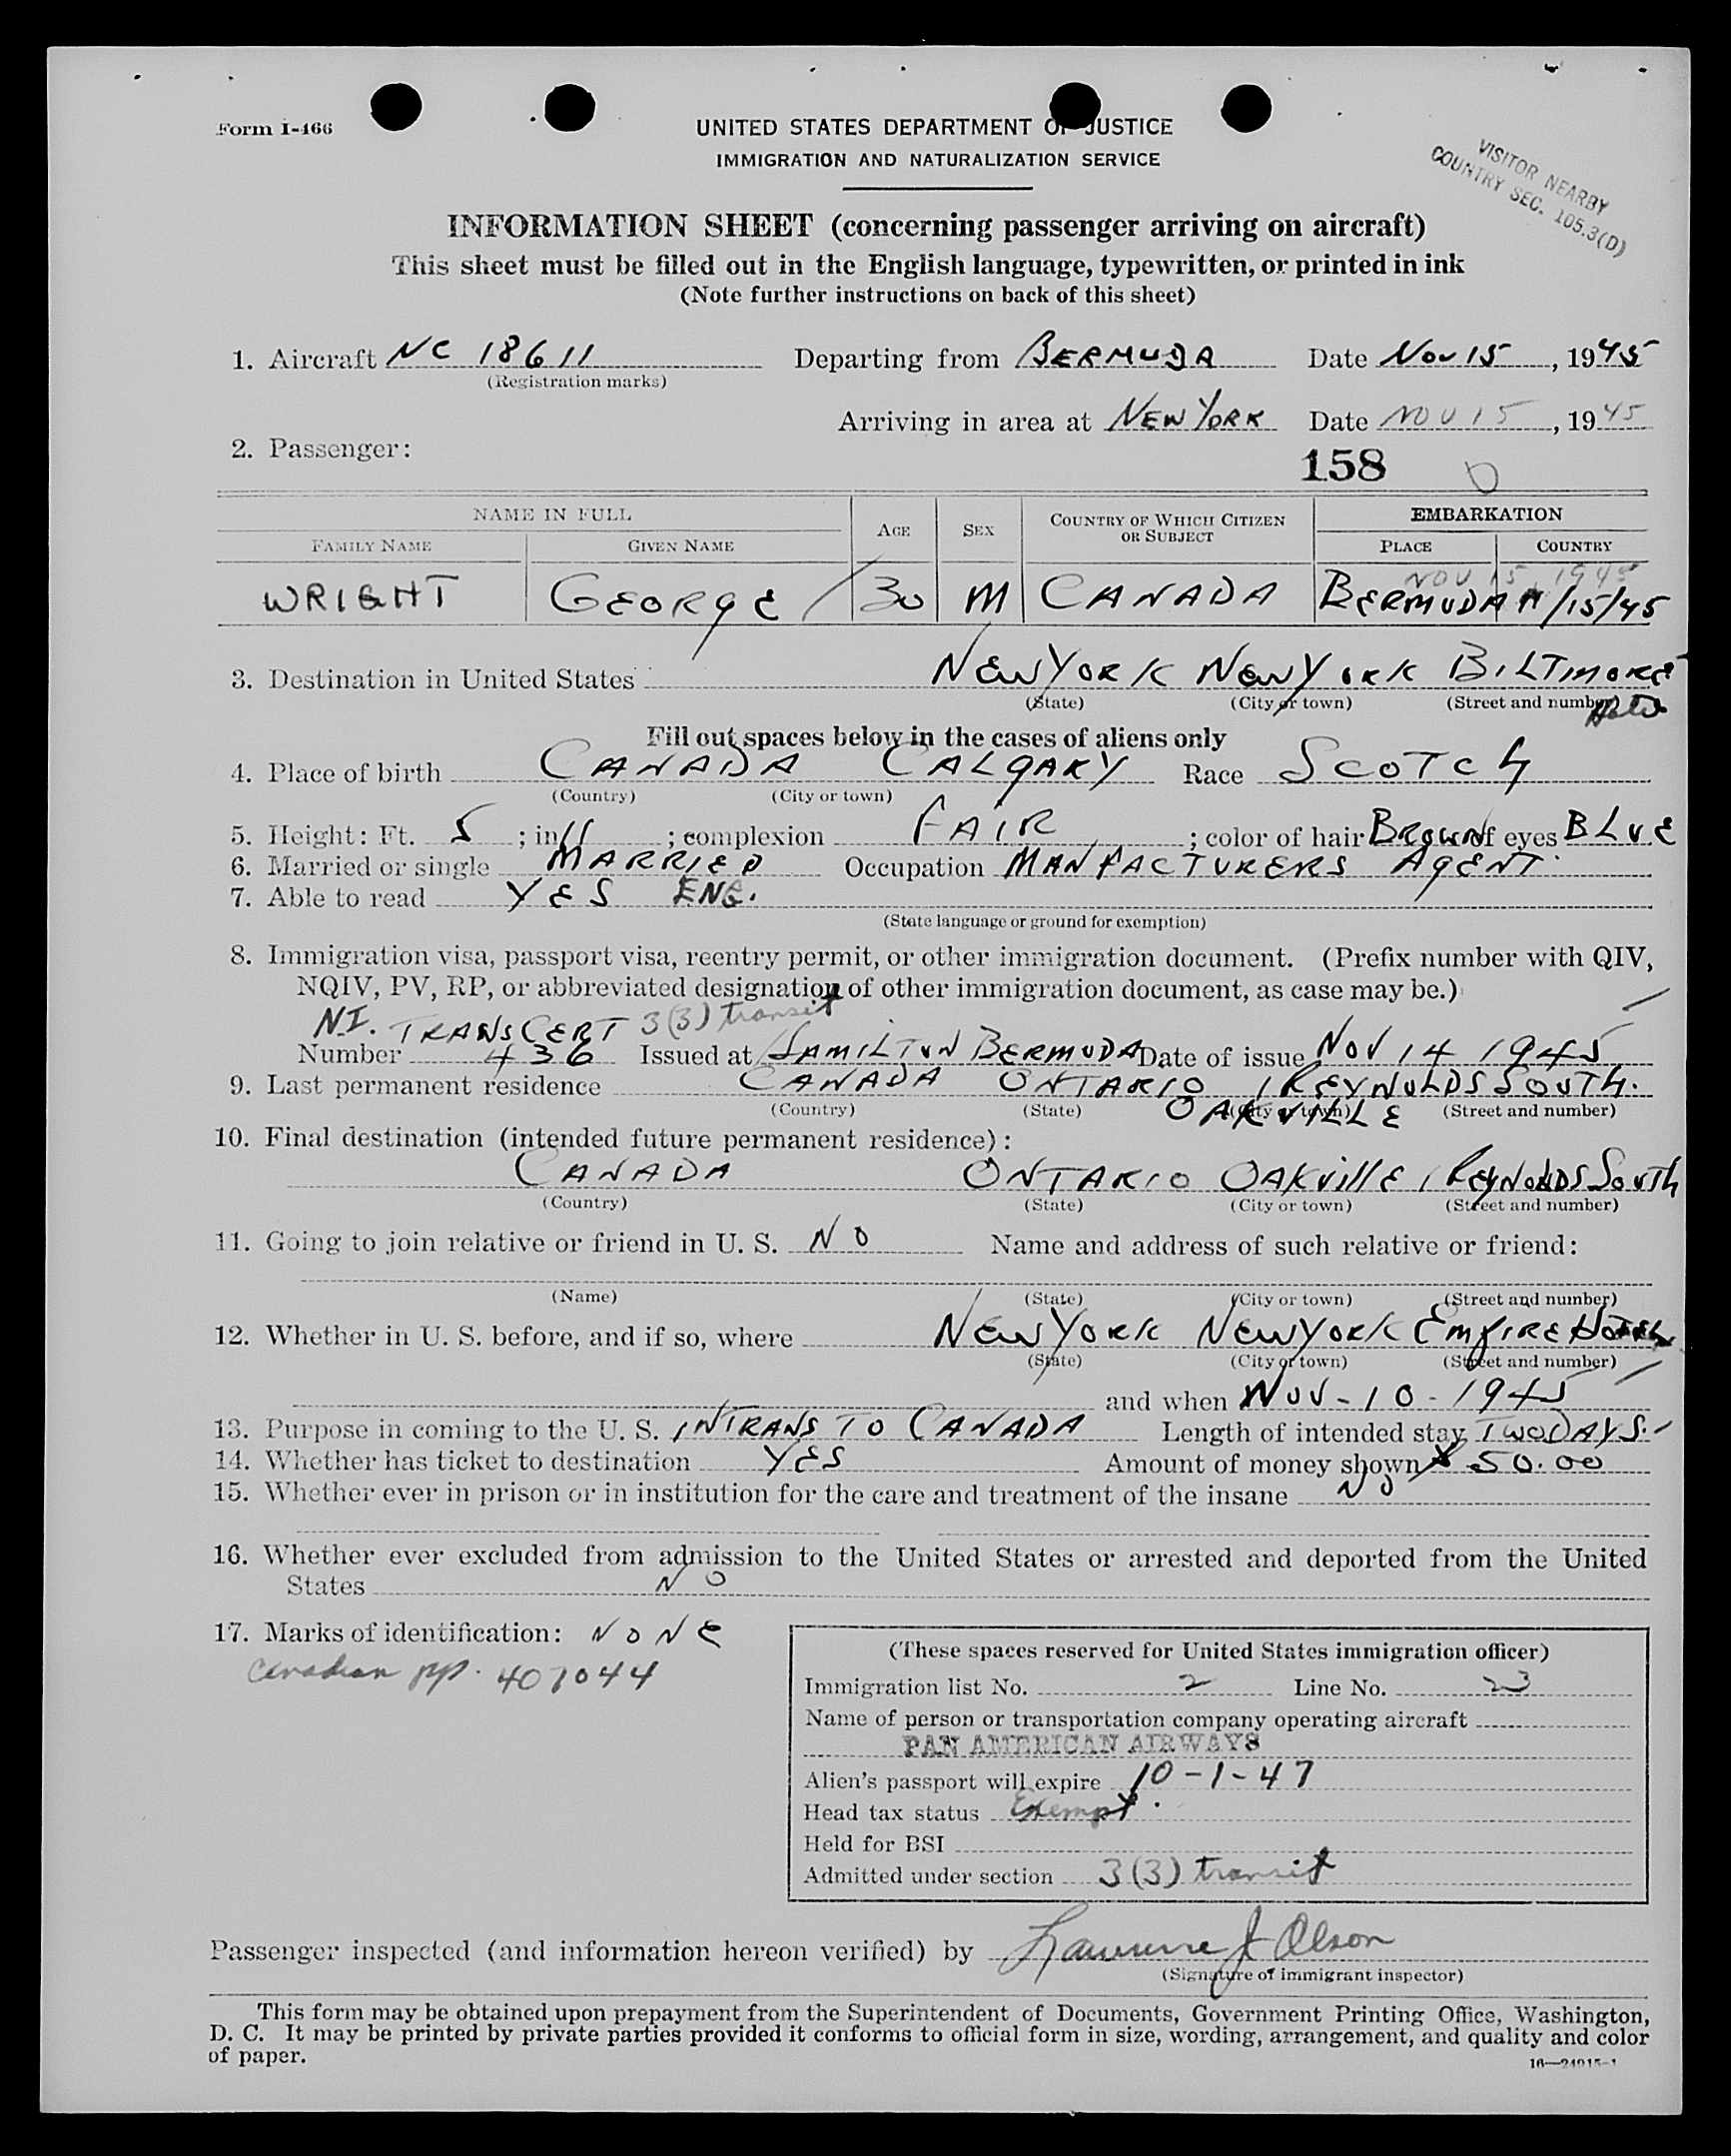 Form I-466
UNITED STATES DEPARTMENT OF JUSTICE
IMMIGRATION AND NATURALIZATION SERVICE
VISITOR NEARBY
COUNTRY SEC. 105.3(D)
INFORMATION SHEET (concerning passenger arriving on aircraft)
This sheet must be filled out in the English language, typewritten, or printed in ink
(Note further instructions on back of this sheet)
1. Aircraft NC 18611 Departing from BERMUDA Date Nov 15, 1945
(Registration marks)
Arriving in area at NEW YORK Date NOV 15, 1945
2. Passenger:
158
NAME IN FULL AGE SEX COUNTRY OF WHICH CITIZEN OR SUBJECT EMBARKATION
FAMILY NAME GIVEN NAME PLACE COUNTRY
NOV 15, 1945
WRIGHT GEORGE 30 M CANADA BERMUDA 11/15/45
3. Destination in United States NEW YORK NEW YORK BILTMORE
(State) (City or town) (Street and number) Hotel
Fill out spaces below in the cases of aliens only
4. Place of birth CANADA CALGARY Race SCOTCH
(Country) (City or town)
5. Height: Ft. 5; in. 11; complexion FAIR; color of hair BROWN of eyes BLUE
6. Married or single MARRIED Occupation MANFACTURERS AGENT.
7. Able to read YES ENG.
(State language or ground for exemption)
8. Immigration visa, passport visa, reentry permit, or other immigration document. (Prefix number with QIV,
NQIV, PV, RP, or abbreviated designation of other immigration document, as case may be.)
N.I. TRANS CERT 3(3) transit
Number 436 Issued at HAMILTON BERMUDA Date of issue NOV 14 1945
9. Last permanent residence CANADA ONTARIO 1 REYNOLDS SOUTH.
(Country) (State) OAKVILLE (City or town) (Street and number)
10. Final destination (intended future permanent residence):
CANADA ONTARIO OAKVILLE 1 REYNOLDS SOUTH
(Country) (State) (City or town) (Street and number)
11. Going to join relative or friend in U. S. NO Name and address of such relative or friend:
(Name) (State) (City or town) (Street and number)
12. Whether in U. S. before, and if so, where NEW YORK NEW YORK EMPIRE HOTEL
(State) (City or town) (Street and number)
and when NOV-10-1945
13. Purpose in coming to the U. S. INTRANS TO CANADA Length of intended stay TWO DAYS.
14. Whether has ticket to destination YES Amount of money shown $50.00
15. Whether ever in prison or in institution for the care and treatment of the insane NO
16. Whether ever excluded from admission to the United States or arrested and deported from the United
States NO
17. Marks of identification: NONE
Canadian pp. 407044
(These spaces reserved for United States immigration officer)
Immigration list No. 2 Line No. 23
Name of person or transportation company operating aircraft
PAN AMERICAN AIRWAYS
Alien's passport will expire 10-1-47
Head tax status Exempt.
Held for BSI
Admitted under section 3(3) transit
Passenger inspected (and information hereon verified) by Lawrence J Olson
(Signature of immigrant inspector)
This form may be obtained upon prepayment from the Superintendent of Documents, Government Printing Office, Washington,
D. C. It may be printed by private parties provided it conforms to official form in size, wording, arrangement, and quality and color
of paper.
16—24915-1